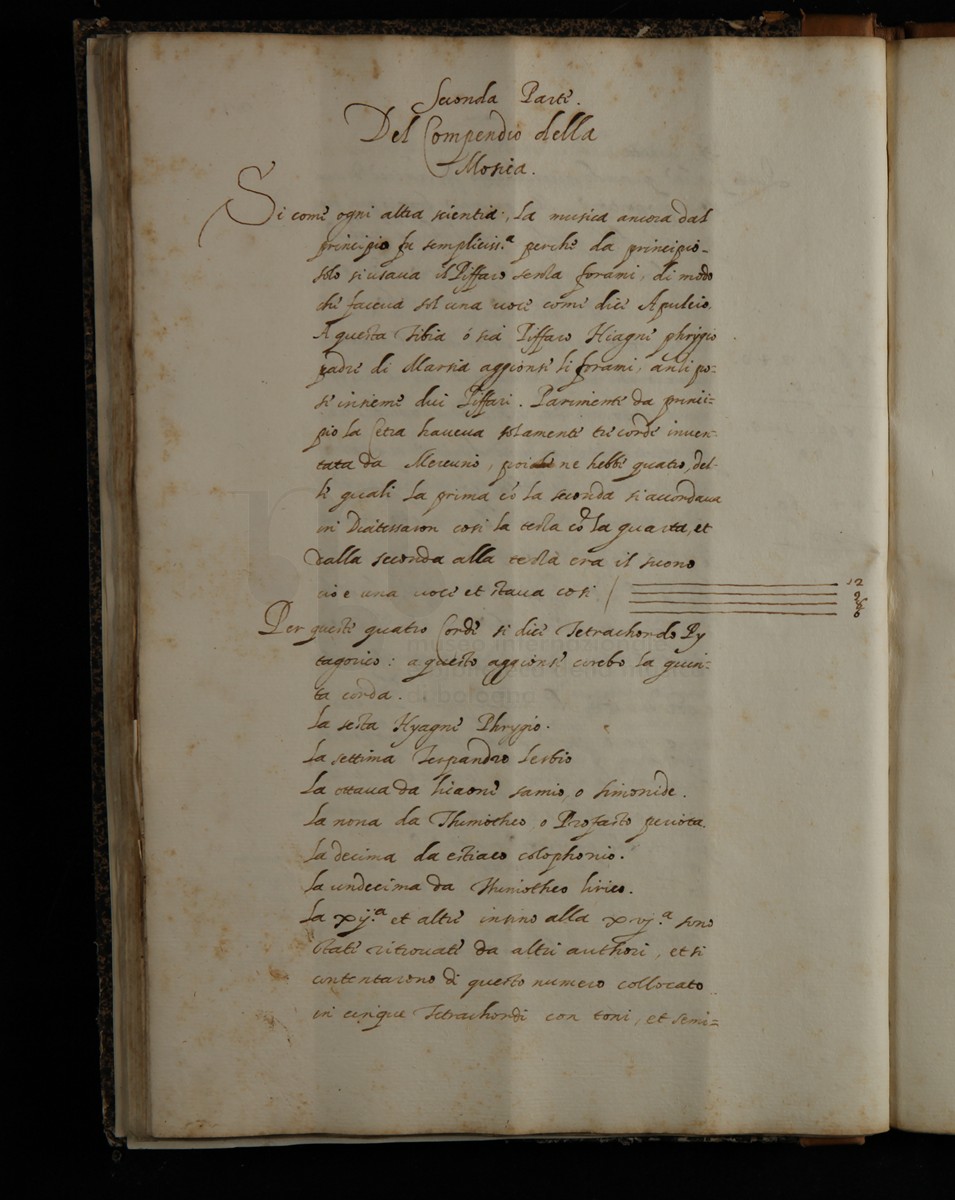 Seconda Parte.
Del Compendio della
Mosica.
Si come ogni altra scientia, la musica ancora dal
principio fu sempliciss.a perche da principio
solo si usava il Piffaro senza forami, di modo
che faceva sol una voce come dice Apuleio.
A questa tibia ó sia Piffaro Hiagne phrygio
padre di Marsia aggionse li forami, anzi po=
se insieme dui Piffari. Parimente da princi=
pio la Cetra haveva solamente tre corde inven=
tata da Mercurio, poi ne hebbe quatro, del=
le quali la prima co la seconda si accordava
in Diatessaron cosi la terza co la quarta, et
dalla seconda alla terza era il suono
cio e una voce et stava cosi 12
Per queste quatro Corde si dice Tetrachordo Py
tagorico: a questo aggionse corebo la quin=
ta corda.
La sesta Hyagne Phrygio.
La settima Terpandro lesbio
La ottava da licaone samio, o simonide.
La nona da Thimotheo, o Profasto
La decima da estiaco colophonio.
La undecima da Thimotheo lirico.
La xij.a et altre insino alla xvj.a sono
state ritrovate da altri authori, et si
contentarono di questo numero collocato
in cinque Tetrachordi con toni, et semi=